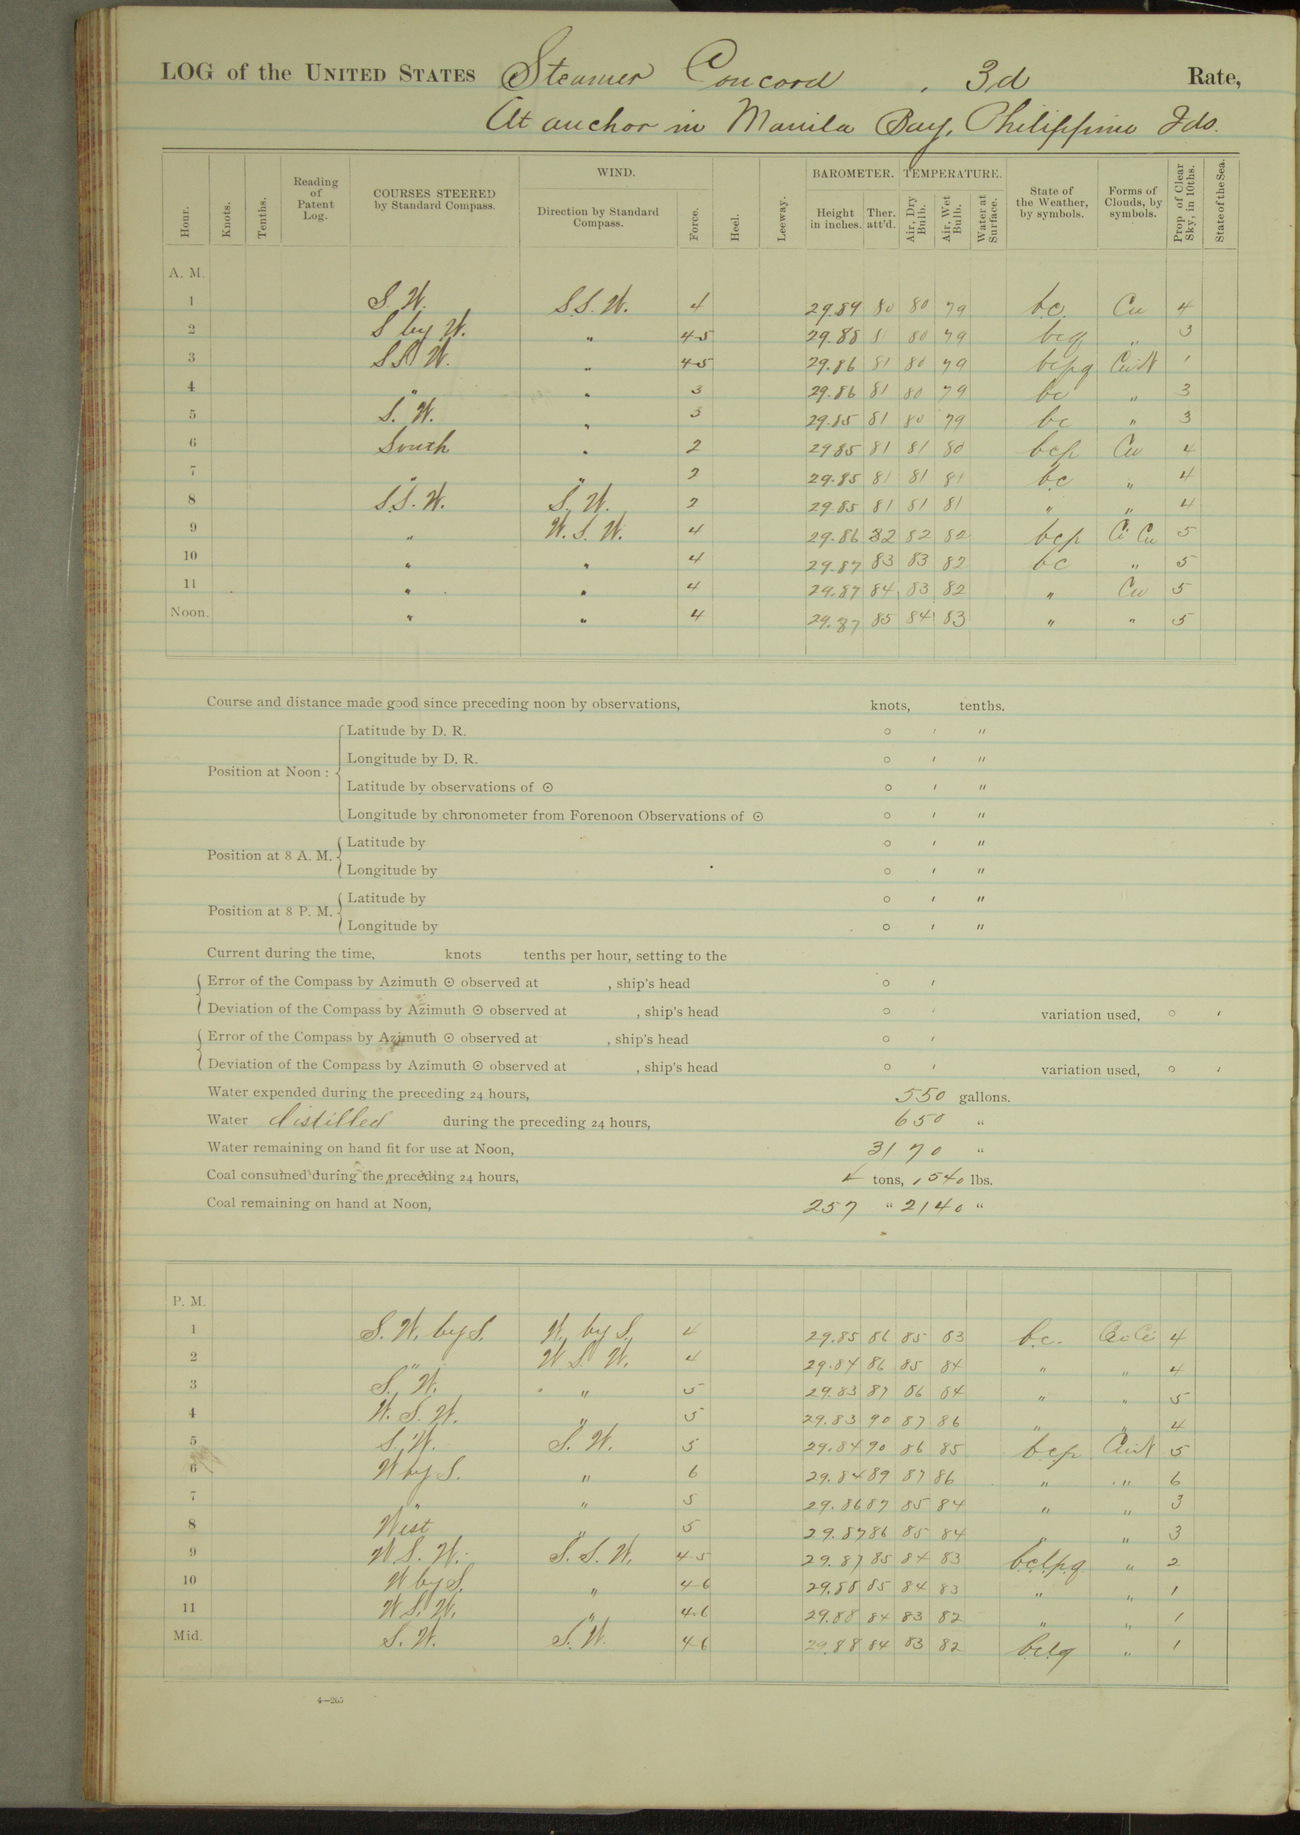 LOG of the UNITED STATES Steamer Concord, 3d Rate,
At anchor in Manila Bay, Philippine Ids.
Hour. Knots. Tenths. Reading of Patent Log. COURSES STEERED by Standard Compass. WIND. Direction by Standard Compass. Force. Heel. Leeway. BAROMETER. Height in inches. Ther. att'd. TEMPERATURE. Air, Dry Bulb. Air, Wet Bulb. Water at Surface. State of the Weather, by symbols. Forms of Clouds, by symbols. Prop. of Clear Sky, in 10ths. State of the Sea.
A. M.
1 S. W. S.S. W. 4 29.89 80 80 79 b.c. Cu 4
2 S by W. " 4-5 29.88 81 80 79 bcq " 3
3 S S W. " 4-5 29.86 81 80 79 bcpq Cu-N 1
4 " " 3 29.86 81 80 79 bc " 3
5 S. W. " 3 29.85 81 80 79 bc " 3
6 South " 2 29.85 81 81 80 bcp Cu 4
7 " " 2 29.85 81 81 81 b.c " 4
8 S.S. W. S. W. 2 29.85 81 81 81 " " 4
9 " W. S. W. 4 29.86 82 82 82 bcp Ci Cu 5
10 " " 4 29.87 83 83 82 bc " 5
11 " " 4 29.87 84 83 82 " Cu 5
Noon. " " 4 29.87 85 84 83 " " 5
Course and distance made good since preceding noon by observations, knots, tenths.
Position at Noon: Latitude by D. R. ° ′ ″
Longitude by D. R. ° ′ ″
Latitude by observations of ☉ ° ′ ″
Longitude by chronometer from Forenoon Observations of ☉ ° ′ ″
Position at 8 A. M. Latitude by ° ′ ″
Longitude by ° ′ ″
Position at 8 P. M. Latitude by ° ′ ″
Longitude by ° ′ ″
Current during the time, knots tenths per hour, setting to the
Error of the Compass by Azimuth ☉ observed at , ship's head ° ′
Deviation of the Compass by Azimuth ☉ observed at , ship's head ° ′ variation used, ° ′
Error of the Compass by Azimuth ☉ observed at , ship's head ° ′
Deviation of the Compass by Azimuth ☉ observed at , ship's head ° ′ variation used, ° ′
Water expended during the preceding 24 hours, 550 gallons.
Water distilled during the preceding 24 hours, 650 "
Water remaining on hand fit for use at Noon, 3170 "
Coal consumed during the preceding 24 hours, tons, 1540 lbs.
Coal remaining on hand at Noon, 257 " 2140 "
P. M.
1 S. W. by S. W. by S. 4 29.85 86 85 83 b.c. 4
2 " W S W. 4 29.84 86 85 84 " " 4
3 S. W. " 5 29.83 87 86 84 " " 5
4 W. S. W. " 5 29.83 90 87 86 " " 4
5 S. W. S. W. 5 29.84 90 86 85 bcp Cu-N 5
6 W by S. " 6 29.84 89 87 86 " " 6
7 " " 5 29.86 87 85 84 " " 3
8 West " 5 29.87 86 85 84 " " 3
9 W. S. W. S. S. W. 4-5 29.87 85 84 83 b.c.l.p.q " 2
10 W by S. " 4-6 29.88 85 84 83 " " 1
11 W S. W. " 4-6 29.88 84 83 82 " " 1
Mid. S. W. S. W. 4-6 29.88 84 83 82 b.c.l.q " 1
4—265